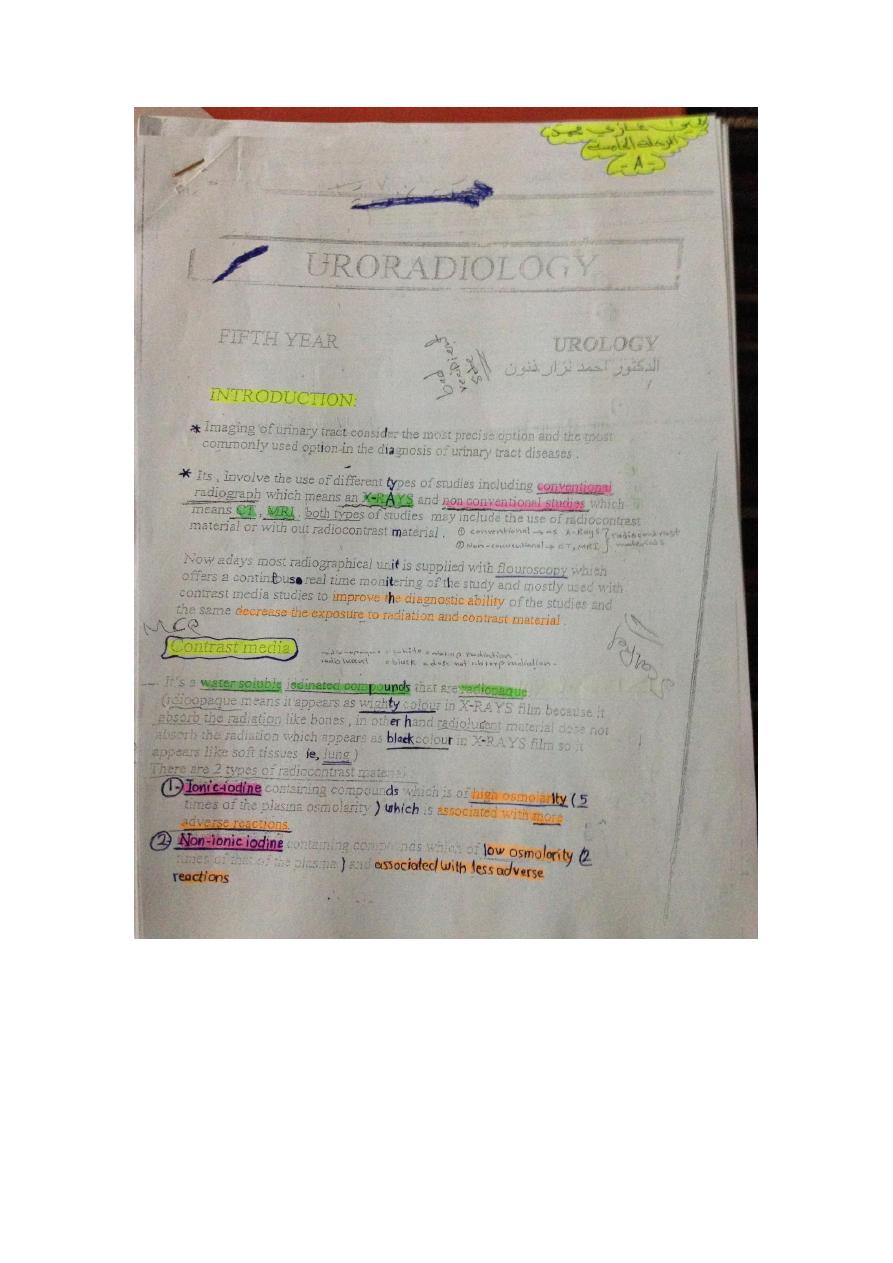 غازي محمد
المرحلة الخامسة
-A-
URORADIOLOGY
FIFTH YEAR
UROLOGY
الدكتور احمد نزار ذنون
INTRODUCTION:
* Imaging of urinary tract consider the most precise option and the most
commonly used option in the diagnosis of urinary tract diseases .
* Its , Involve the use of different types of studies including conventional
radiograph which means an X-RAYS and non conventional studies which
means CT , MRI , both types of studies may include the use of radiocontrast
material or with out radiocontrast material .
① conventional → as X-Rays } radiocontrast
② Non-conventional → CT, MRI materials
Now adays most radiographical unit is supplied with flouroscopy which
offers a continous real time monitering of the study and mostly used with
contrast media studies to improve the diagnostic ability of the studies and
the same decrease the exposure to radiation and contrast material .
MCQ
Contrast media
It's a water soluble iodinated compounds that are radiopaque
(rdioopaque means it appears as wighty colour in X-RAYS film because it
absorb the radiation like bones , in other hand radiolucent material dose not
absorb the radiation which appears as black colour in X-RAYS film so it
appears like soft tissues ie, lung )
There are 2 types of radiocontrast material
1- Ionic-iodine containing compounds which is of high osmolarity ( 5
times of the plasma osmolarity ) which is associated with more
adverse reactions
2) Non-ionic iodine containing compounds which of low osmolority (2
times of that of the plasma ) and associated with less adverse
reactions